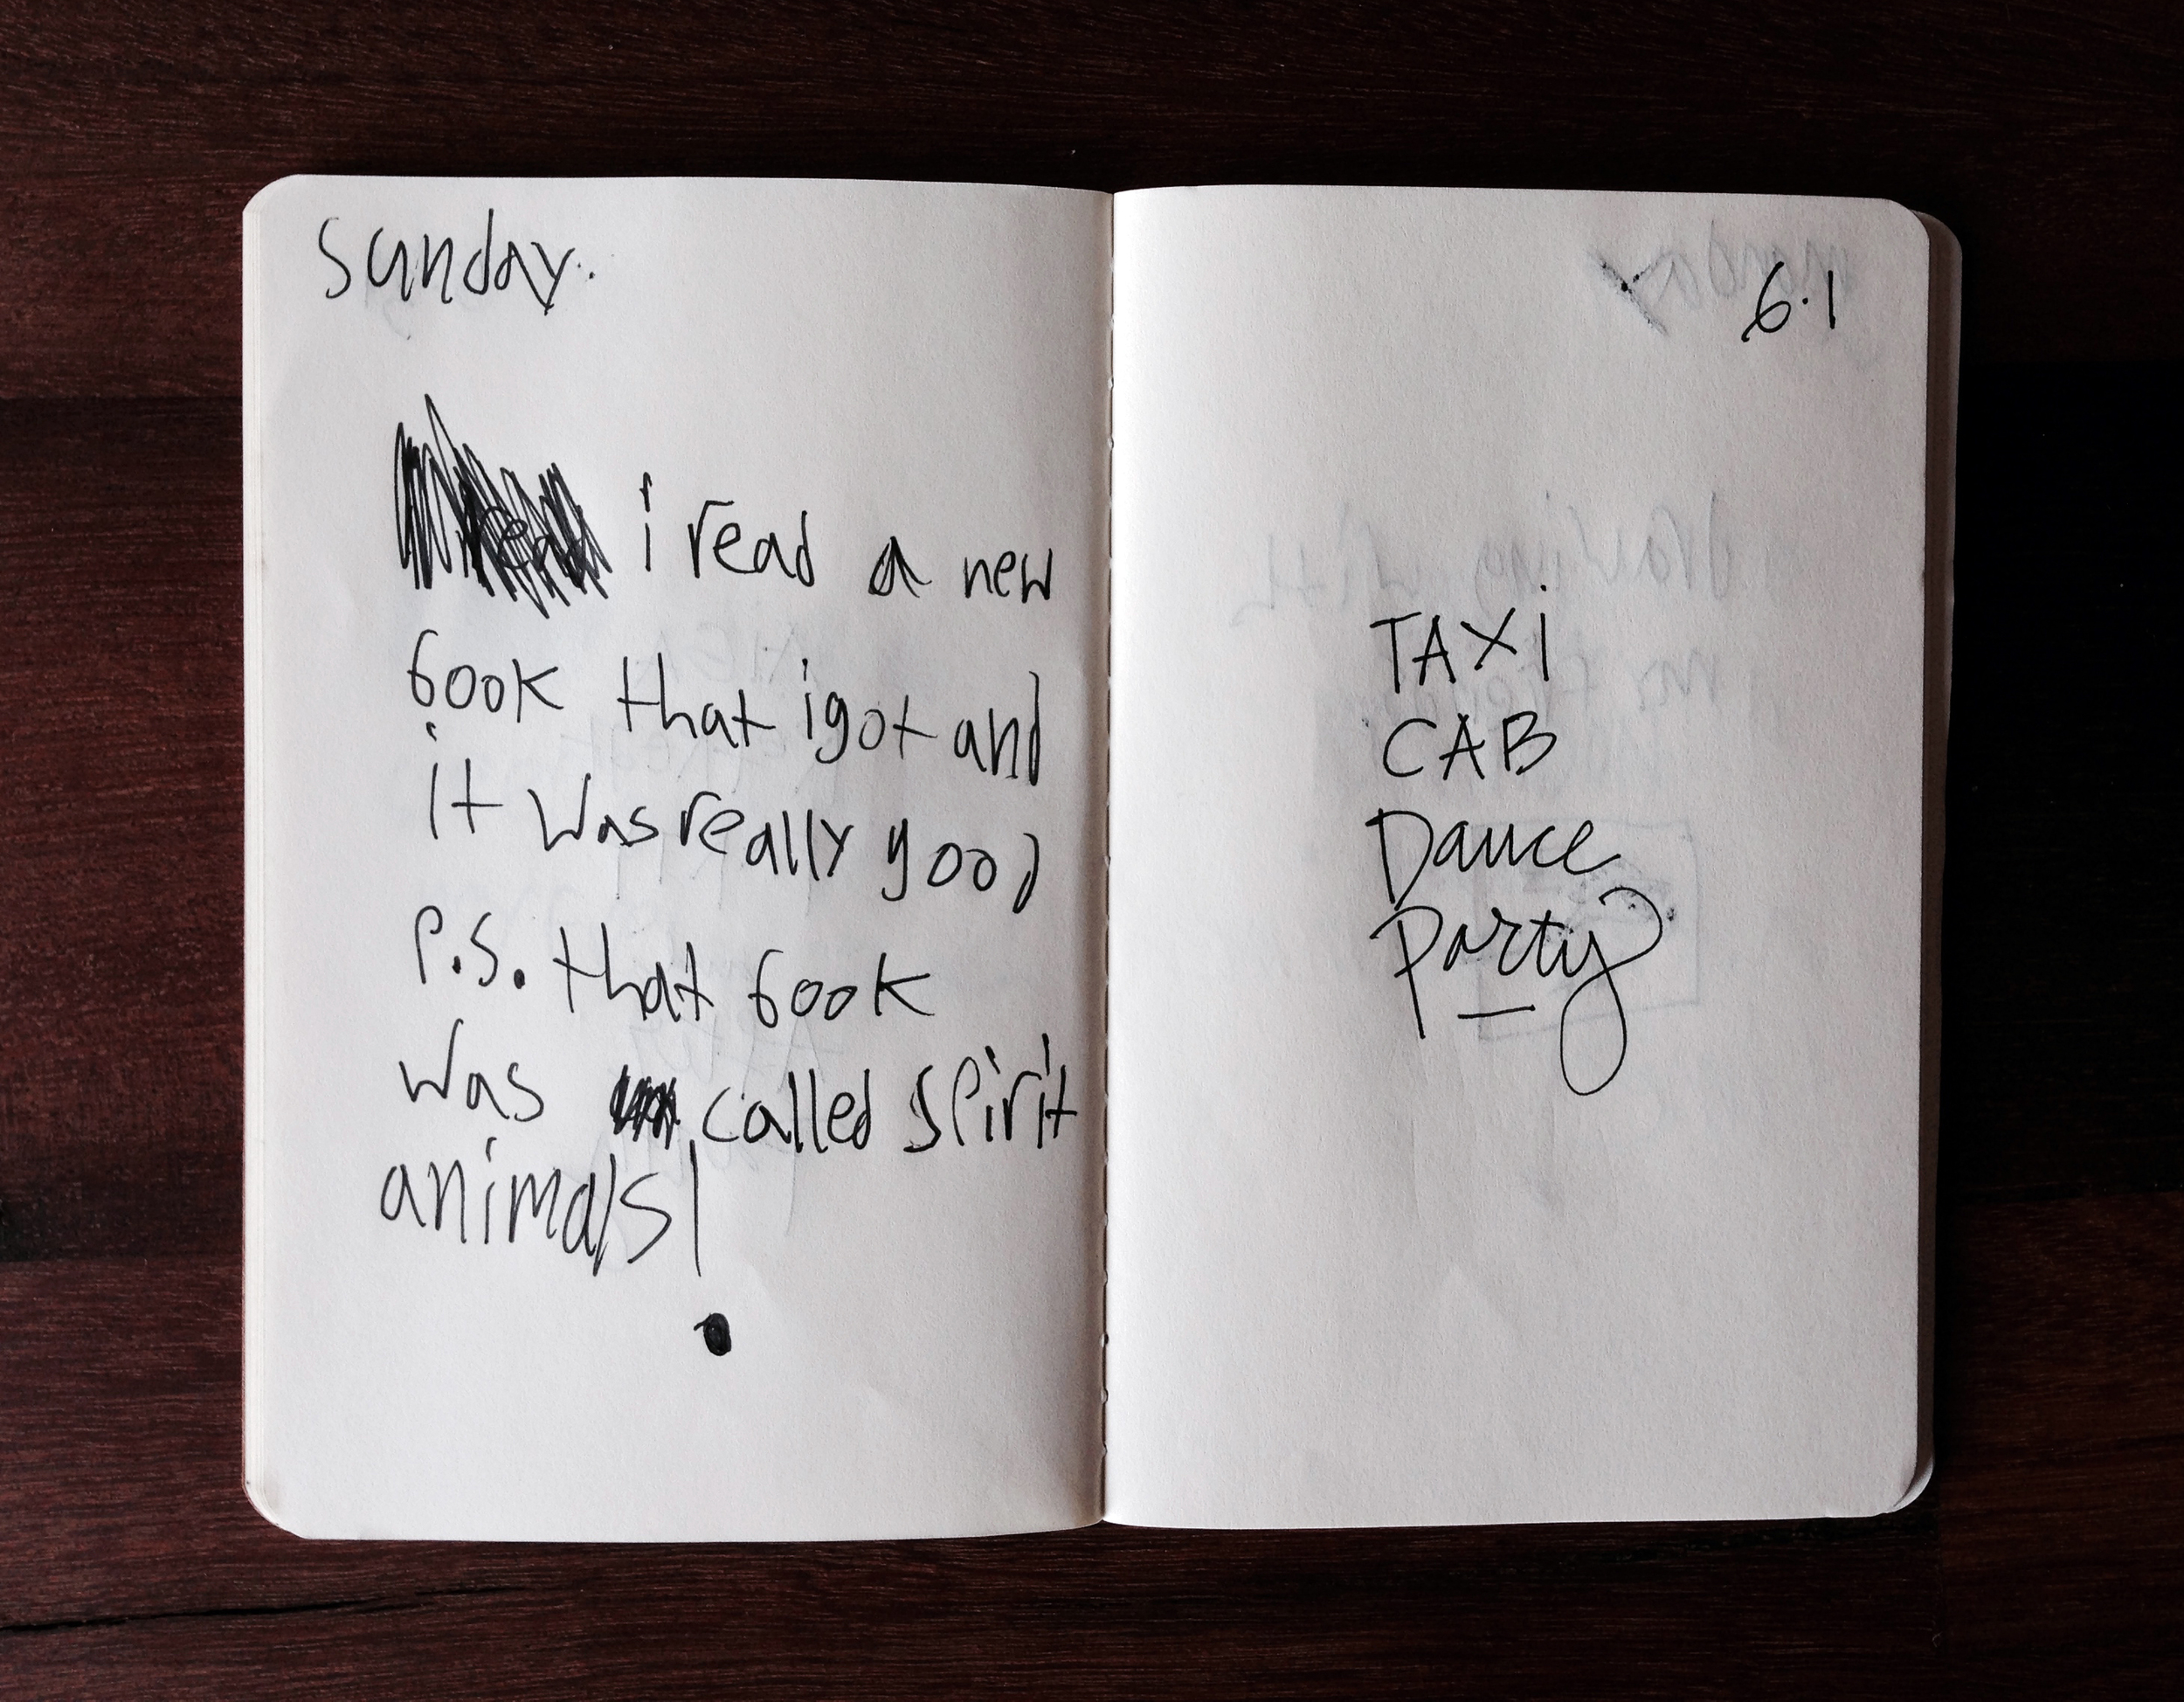 sunday.
i read a new
book that i got and
it was really good
P.S. that book
was called spirit
animals!
6.1
TAXi
CAB
Dance
Party